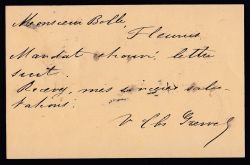 Monsieur Bolle
Fleurus
Mandat trouvé, lettre
suit.
Recevez, mes sincères salu-
tations.
V